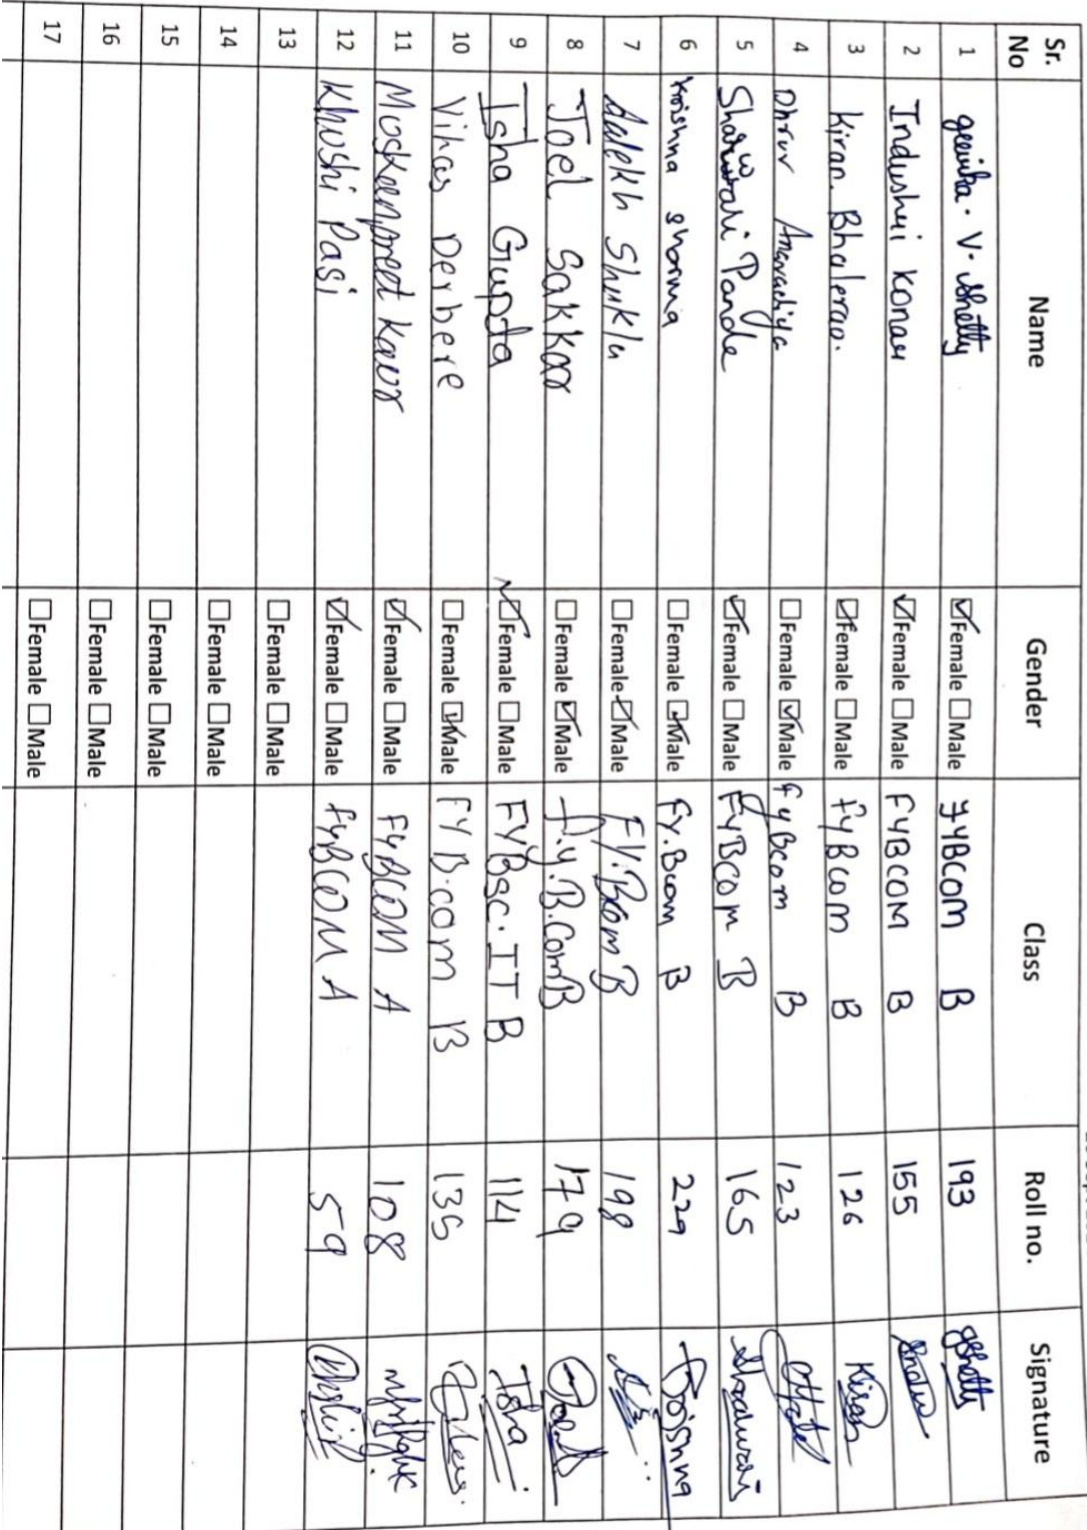 Sr. No Name Gender Class Roll no. Signature
1 V. Shetty ☑Female ☐Male FYBCOM B 193 gshetty
2 Indushri Konar ☑Female ☐Male FYBCOM B 155 Indu
3 Kiran. Bhalerao. ☑Female ☐Male FYBCOM B 126 Kiran
4 Dhruv ☐Female ☑Male FyBcom B 123
5 Sharwari Pande ☑Female ☐Male FyBcom B 165 Sharwari
6 Krishna Sharma ☐Female ☑Male Fy.Bcom B 229 Krishna
7 Aalekh Shukla ☐Female ☑Male FY.Bcom B 198
8 Joel Sakkar ☐Female ☑Male f.y.B.Com B 179 Joel
9 Isha Gupta ☑Female ☐Male FYBsc.IT B 114 Isha
10 Vikas Derbere ☐Female ☑Male FY B.com B 135
11 Moskeenpreet Kaur ☑Female ☐Male FYBCOM A 108
12 Khushi Pasi ☑Female ☐Male FYBCOM A 59 Khushi
13 ☐Female ☐Male
14 ☐Female ☐Male
15 ☐Female ☐Male
16 ☐Female ☐Male
17 ☐Female ☐Male